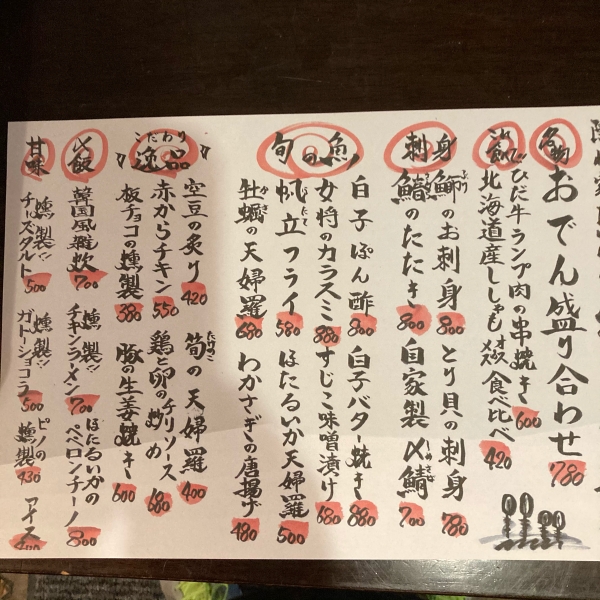 名物
おでん盛り合わせ 780
ひだ牛ランプ肉の串焼き 600
北海道産ししゃもオスメス食べ比べ 420
刺身
鰤のお刺身 800
とり貝の刺身 780
鯵のたたき 800
自家製〆鯖 700
旬の魚
白子ぽん酢 800
白子バター焼き 880
女将のカラスミ 880
すじこ味噌漬け 680
帆立フライ 580
ほたるいか天婦羅 500
牡蠣の天婦羅 680
わかさぎの唐揚げ 480
こだわり
逸品
空豆の炙り 420
筍の天婦羅 400
赤からチキン 550
鶏と卵のチリソース炒め 680
板チョコの燻製 380
豚の生姜焼き 600
〆飯
韓国風雑炊 700
燻製!!チキンラーメン 700
ほたるいかのペペロンチーノ 800
甘味
燻製!!チーズタルト 500
燻製!!ガトーショコラ 500
ピノの燻製 430
アイス